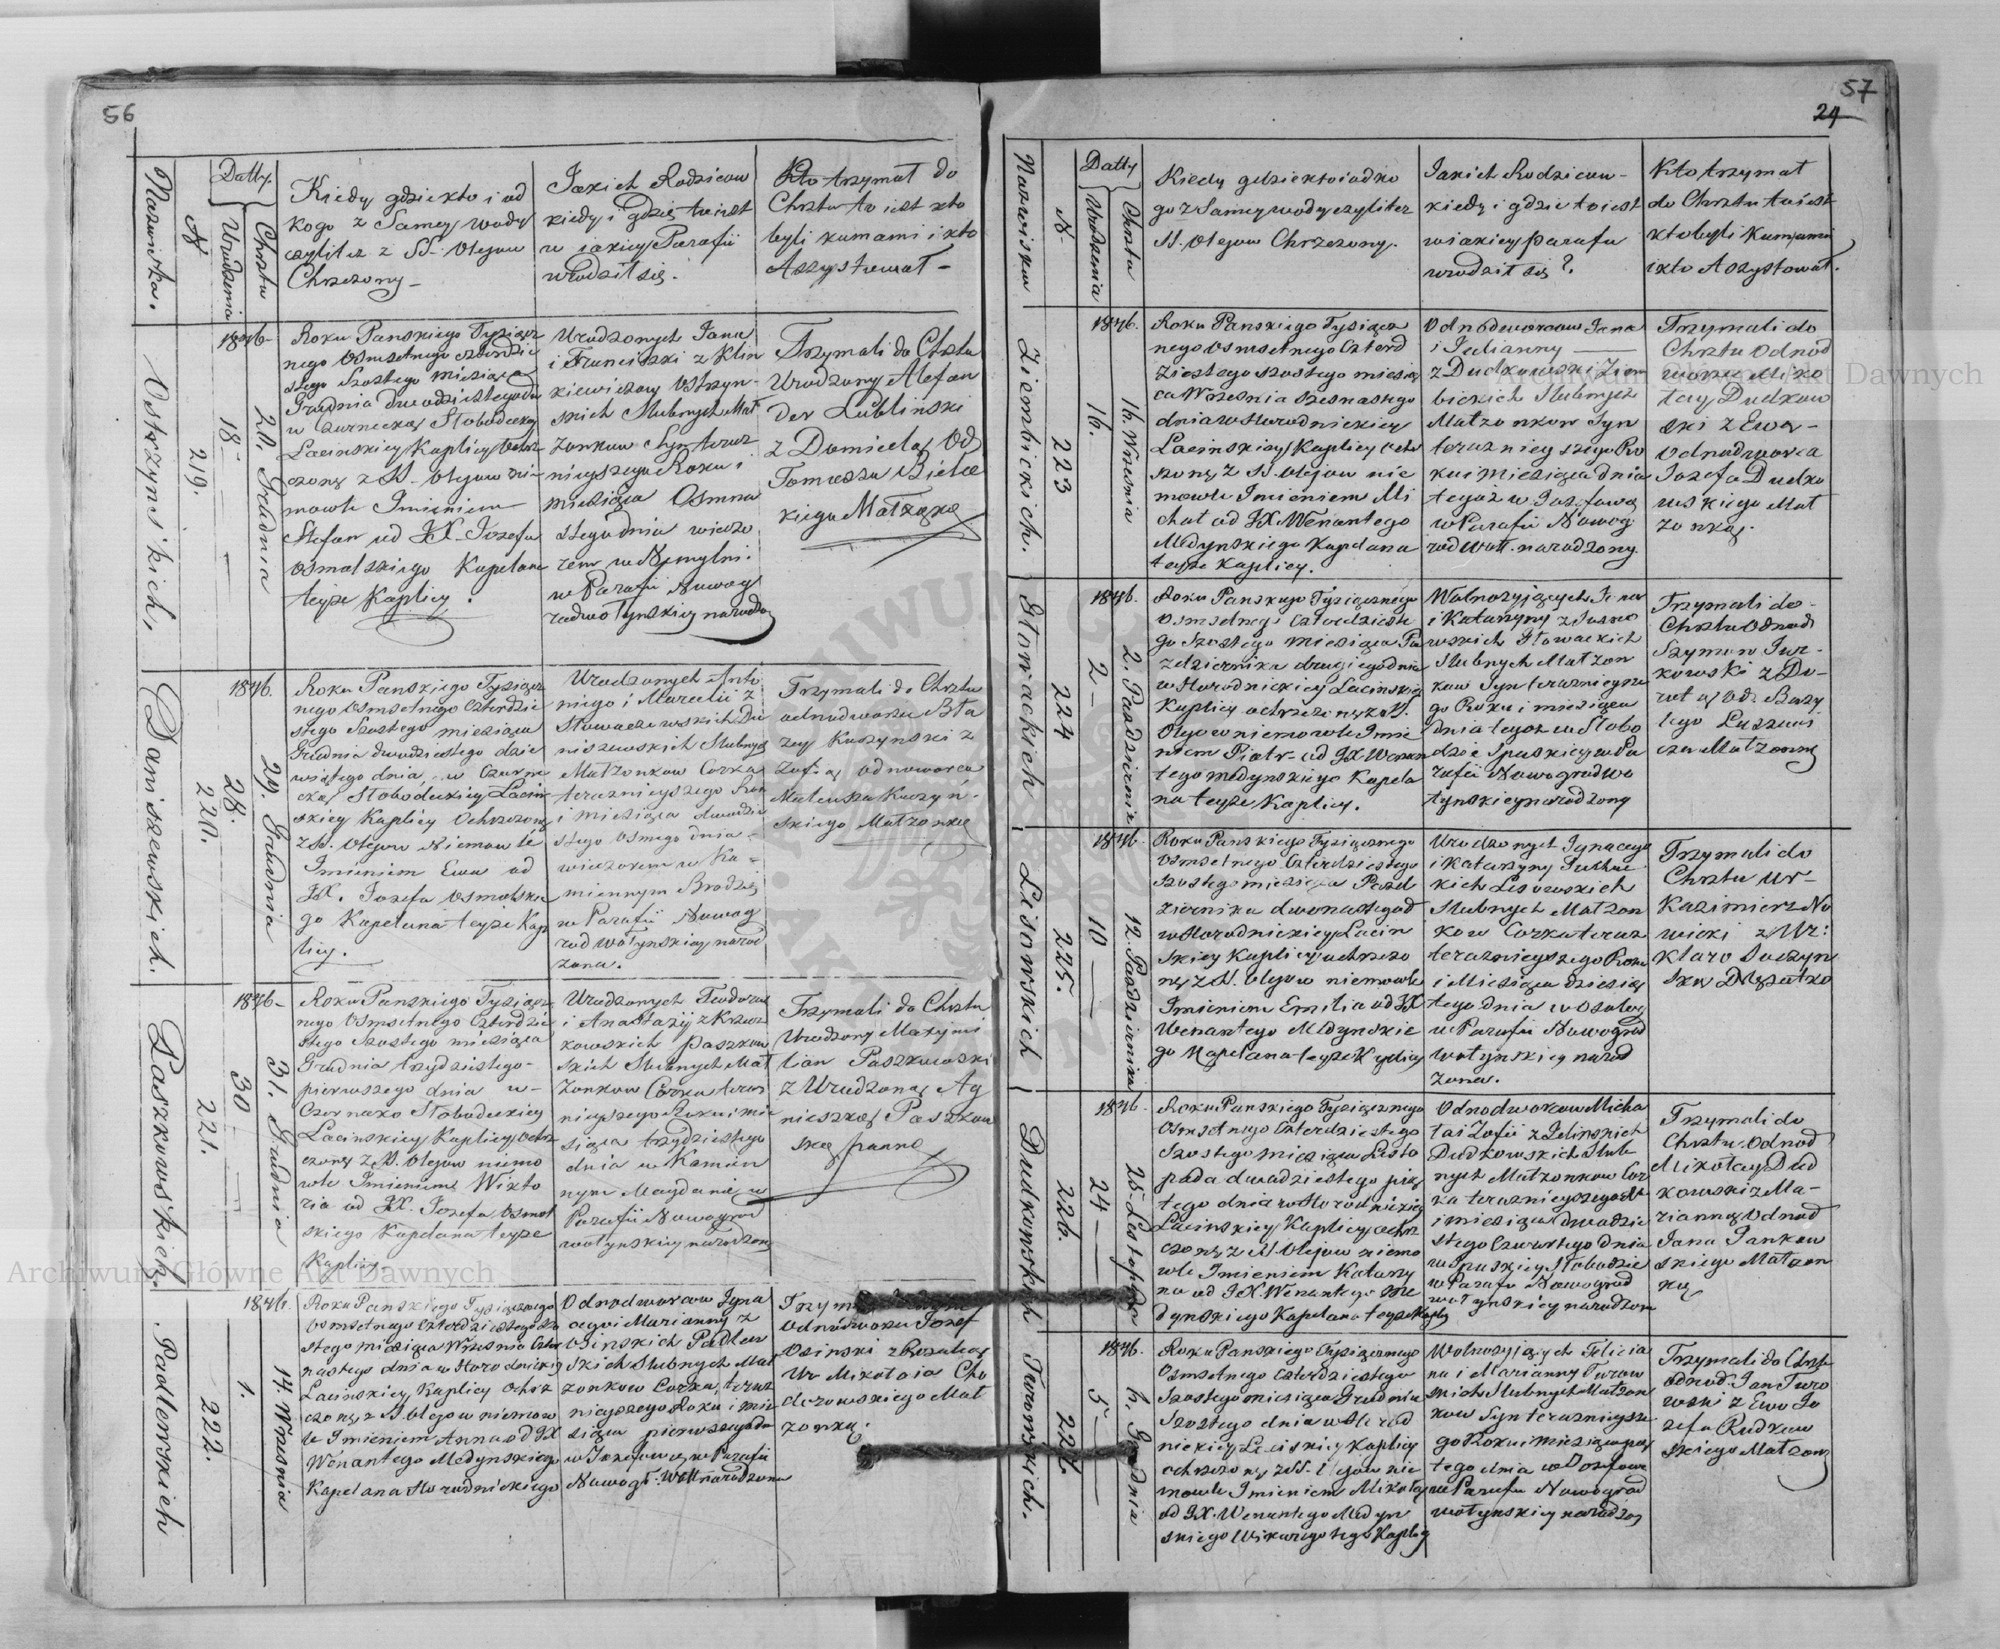 56
Nazwiska.
Datty.
N
Urodzenia
Chrztu
Kiedy gdzie kto i od
kogo z Samey wody
czyli też z SS. Olejow
Chrzczony_
Jakich Rodzicow
kiedy i gdzie to iest
w iakiey Parafii
urodził się.
Kto trzymał do
Chrztu to iest kto
byli kumami i kto
Assystował_
Ostrzyńskich.
219.
1846.
18
20. Grudnia
Roku Panskiego Tysiącz
nego Osmsetnego Czterdzie
stego Szostego miesiąca
Grudnia dwudziestego dnia
w Czerneckey Słobodeckey
Łacinskiey Kaplicy Ochrz
czony z SS. Olejow nie
mowle Imieniem
Stefan od JX. Jozefa
Osmolskiego Kapelana
teyże Kaplicy.
Urodzonych Jana
i Franciszki z Klim
kiewiczow Ostrzyn-
skich Slubnych Mał
żonkow Syn teraz
nieyszego Roku i
miesiąca Osmna
stego dnia wieczo
rem w Nemylni
w Parafii Nowog
rodwołynskiey narodzo
Trzymali do Chrztu
Urodzony Alexan
der Lublinski
z Domicelą Od
Tomasza Bielec
kiego Małżąką
Daniszewskich.
220.
1846.
28.
29. Grudnia
Roku Panskiego Tysiącz
nego Osmsetnego Czterdzie
stego Szostego miesiąca
Grudnia dwudziestego dzie
wiątego dnia w Czerne
ckey Słobodeckiey Łacin
skiey Kaplicy Ochrzczony
z SS. Olejow Niemowle
Imieniem Ewa od
JX. Jozefa Osmolskie
go Kapelana teyże Kap
licy.
Urodzonych Anto
niego i Marcelii z
Słowaczewskich Da
niszewskich Slubnych
Małżonkow Corka
teraznieyszego Rok
i miesiąca dwudzie
stego osmego dnia
wieczorem w Ka-
miennym Brodzie
w Parafii Nowog
rod Wołynskiey narod
zona.
Trzymali do Chrztu
odnodworzec Bła
żey Kuczynski z
Zofią odnoworca
Mateusza Kuczyń-
skiego Małżonką
Paszkowskich.
221.
1846
30
31. Grudnia
Roku Panskiego Tysiącz
nego Osmsetnego Czterdzie
stego Szostego miesiąca
Grudnia trzydziestego-
pierwszego dnia w-
Czernecko Słobodeckiey
Łacinskiey Kaplicy Ochrz
czony z SS. Olejow niemo
wle Imieniem Wikto
ria od JX. Jozefa Osmol
skiego Kapelana teyże
Kaplicy.
Urodzonych Teodora
i Anastazyi z Krzecz
kowskich Paszkow
skich Slubnych Mał
żonkow Corka teraz
nieyszego Roku i mie
siąca trzydziestego
dnia w Kamien
nym Maydanie w
Parafii Nowogrod
wołynskiey narodzona
Trzymali do Chrztu
Urodzony Maxymi
lian Paszkowski
z Urodzoną Ag
nieszką Paszkow
ską Panną
Padlewskich
222.
1846.
1.
14. Września
Roku Panskiego Tysiącznego
Osmsetnego Czterdziestego Szo
stego miesiąca Września Czter
nastego dnia w Horodnickiey
Łacinskiey Kaplicy Ochrz
czony z SS. Olejow niemow
le Imieniem Anna od JX
Wenantego Medynskiego
Kapelana Horodnickiego
Odnodworcow Igna
cego i Marianny z
Osinskich Padlew
skich Slubnych Mał
żonkow Corka, teraz
nieyszego Roku i mie
siąca pierwszego dnia
w Jozefowce w Parafii
Nowogr. Woł narodzona
Odnodworzec Jozef
Osinski z Rozalią
Ur Mikołaia Cho
derowskiego Mał
żonką.
57
24
Nazwiska
N
Datty
Urodzenia
Chrztu
Kiedy gdzie kto i od ko
go z Samey wody czyli też
SS. Olejow Chrzczony.
Jakich Rodzicow-
kiedy i gdzie to iest
w iakiey parafii
urodził się?
Kto trzymał
do Chrztu to iest
kto byli Kumami
i kto Assystował.
Ziembickich.
223
1846.
16.
16. Września
Roku Panskiego Tysiącz
nego Osmsetnego Czterd
ziestego szostego miesią
ca Września szesnastego
dnia w Horodnickiey
Łacinskiey Kaplicy Ochrz
czony z SS. Olejow nie
mowle Imieniem Mi
chał od JX. Wenantego
Medynskiego Kapelana
teyże Kaplicy.
Odnodworcow Jana
i Julianny
z Dudkowskich Ziem
bickich Slubnych
Małżonkow Syn
teraznieyszego Ro
ku i miesiąca dnia
tegoż w Jozefowce
w Parafii Nowog
rod Woł. narodzony.
Trzymali do
Chrztu Odnod
worzec Miko
łay Dudkow
ski z Ewą-
Odnodworca
Jozefa Dudko
wskiego Mał
żonką.
Słowackich
224
1846.
2
2. Pazdziernik
Roku Panskiego Tysiącznego
Osmsetnego Czterdzieste
go Szostego miesiąca Pa
zdziernika drugiego dnia
w Horodnickiey Łacinskiey
Kaplicy ochrzczony z SS.
Olejow niemowle Imie
niem Piotr od JX Wenan
tego Medynskiego Kapela
na teyże Kaplicy.
Wolnożyjących Jana
i Katarzyny z Jusno
wskich Słowackich
Slubnych Małżon
kow Syn teraznieysze
go Roku i miesiąca
dnia tegoż w Słobo
dzie Spaskiey w Pa
rafii Nowogrodwo
łynskiey narodzony
Trzymali do-
Chrztu Odnod
Szymon Jur-
kowski z Do-
rotą Od. Bazy
lego
Małżonką
Lisowskich
225.
1846.
10
12. Pazdziernika
Roku Panskiego Tysiącznego
Osmsetnego Czterdziestego
szostego miesiąca Pazd
ziernika dwonastego d
w Horodnickiey Łacin
skiey Kaplicy ochrzczo
ny z SS. Olejow niemowle
Imieniem Emilia od JX
Wenantego Medynskie
go Kapelana teyże Kaplicy
Urodzonych Ignacego
i Katarzyny
Lisowskich
Slubnych Małżon
kow Corka teraz
teraznieyszego Roku
i Miesiąca dziesią
tego dnia w Osołowy
w Parafii Nowogrod
wołynskiey narod
zona.
Trzymali do
Chrztu Ur-
Kazimierz No
wicki z Ur:
Klarą
Dudkowskich
226.
1846.
24
25. Listopada
Roku Panskiego Tysiącznego
Osmsetnego Czterdziestego
Szostego miesiąca Listo
pada dwudziestego pią
tego dnia w Horodnickiey
Łacinskiey Kaplicy ochrz
czony z SS. Olejow niemo
wle Imieniem Katarzy
na od JX. Wenantego Me
dynskiego Kapelana teyże Kaplicy
Odnodworcow Micha
ła i Zofii z Zelinskich
Dudkowskich Slub
nych Małżonkow Cor
ka teraznieyszego R
i miesiąca dwudzie
stego Czwartego dnia
w Spaskiey Słobodzie
w Parafii Nowogrod
wołynskiey narodzona
Trzymali do
Chrztu Odnod
Mikołay Dud
kowski z Ma-
rianną Odnod
Jana Jankow
skiego Małżon
ką
Turowskich.
227.
1846.
5
6. Grudnia
Roku Panskiego Tysiącznego
Osmsetnego Czterdziestego
Szostego miesiąca Grudnia
Szostego dnia w Horod
nickiey Łacinskiey Kaplicy
ochrzczony z SS. Olejow nie
mowle Imieniem Mikołay
od JX. Wenantego Medyn
skiego Wikarego tego Kaplicy
Wolnożyjących Felicia
na i Marianny Turow
skich Slubnych Małżon
kow Syn teraznieysze
go Roku i miesiąca pią
tego dnia w Jozefowce
w Parafii Nowogrod
wołynskiey narodzony
Trzymali do Chrztu
odnod. Jan Turo
wski z Ewą Jo
zefa Rudkow
skiego Małżonką
Archiwum Główne Akt Dawnych
Archiwum Główne Akt Dawnych